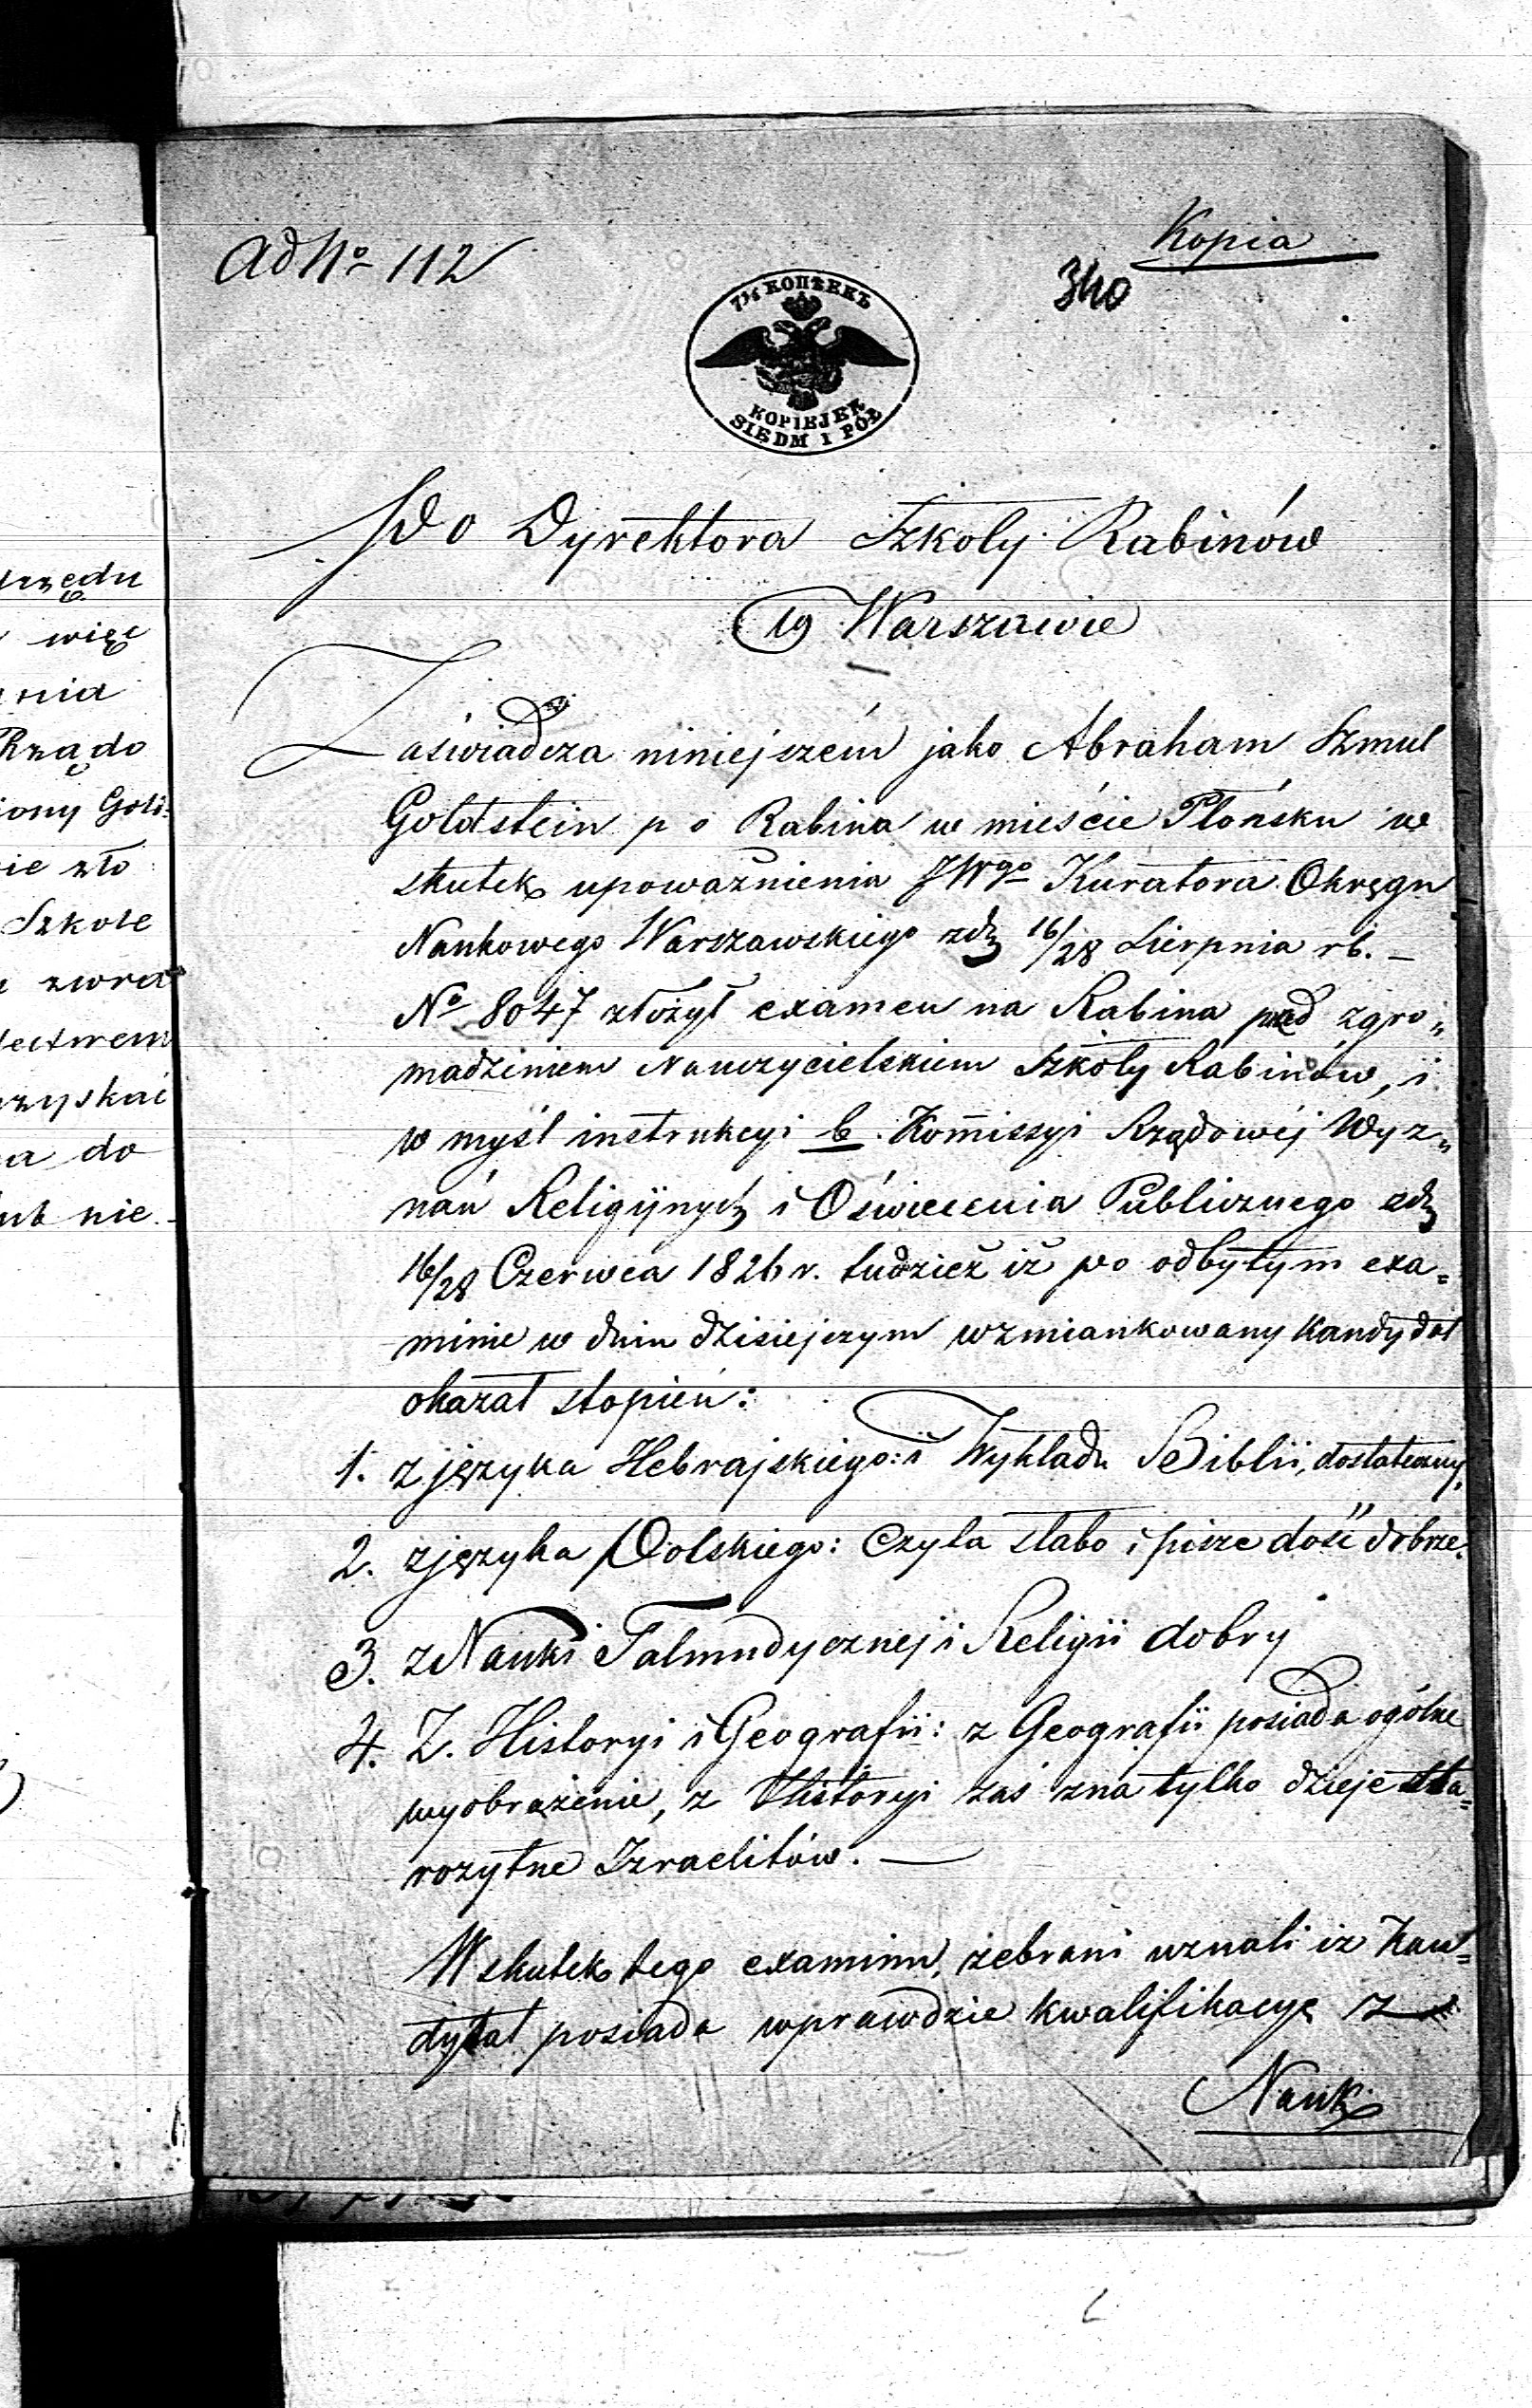 Ad No 112
Kopia
340
7½ КОПѢЕКЪ
KOPIEJEK
SIEDM I PÓŁ
Do Dyrektora Szkoły Rabinów
w Warszawie
Zaświadcza niniejszém jako Abraham Szmul
Goldstein p o Rabina w mieście Płońsku w
skutek upoważnienia JWgo Kuratora Okręgu
Naukowego Warszawskiego zd 16/28 Sierpnia rb. –
No 8047 złożył examen na Rabina pzed zgro„
madzeniem Nauczycielskiem Szkoły Rabinów, i
w myśl instrukcyi b. Kommissyi Rządowéj Wyz„
nań Religijnych i Oświecenia Publicznego zd
16/28 Czerwca 1826 r. tudzież iż po odbytym exa=
minie w dniu dzisiejszym wzmiankowany Kandydat
okazał stopień:
1. z języka Hebrajskiego: i Wykładu Biblii, dostateczny,
2. z języka Polskiego: Czyta słabo i pisze dość dobrze.
3. z Nauki Talmudycznej i Religii dobry
4. Z. Historyi i Geografii: z Geografii posiada ogólne
wyobrażenie, z Historyi zaś zna tylko dzieje sta=
rożytne Izraelitów. —
W skutek tego examinu, zebrani uznali iż Kan=
dydat posiada wprawdzie kwalifikacyę z
Nauk
trzędu
więc
nia
Rządo
iony Gold=
ie zło
Szkole
zwra
zyskać
a do
ub nie.